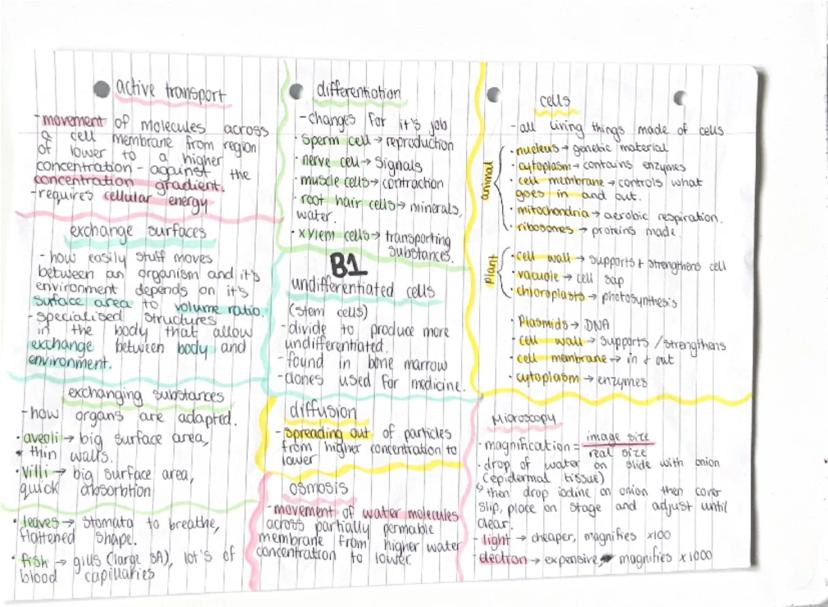 active transport
-movement of molecules across
a cell membrane from region
of lower to a higher
concentration - against the
concentration gradient.
-requires cellular energy
exchange surfaces
-how easily stuff moves
between an organism and it's
environment depends on it's
surface area to volume ratio.
-specialised structures
in the body that allow
exchange between body and
environment.
exchanging substances
-how organs are adapted.
·aveoli → big surface area,
thin walls.
·villi → big surface area,
quick absorbtion
·leaves → stomata to breathe,
flattened shape.
·fish → gills (large SA), lot's of
blood capillaries
differentiation
-changes for it's job
·sperm cell → reproduction
·nerve cell → signals
·muscle cells → contraction
·root hair cells → minerals,
water.
·xylem cells → transporting
substances.
B1
undifferentiated cells
(stem cells)
-divide to produce more
undifferentiated.
-found in bone marrow
-clones used for medicine.
diffusion
-spreading out of particles
from higher concentration to
lower
osmosis
-movement of water molecules
across partially permable
membrane from higher water
concentration to lower
cells
-all living things made of cells
animal
·nucleus → genetic material
·cytoplasm → contains enzymes
·cell membrane → controls what
goes in and out.
·mitochondria → aerobic respiration.
·ribosomes → proteins made
Plant
·cell wall → supports + strengthens cell
·vacuole → cell sap
·chloroplasts → photosynthesis
·Plasmids → DNA
·cell wall → supports / strengthens
·cell membrane → in + out
·cytoplasm → enzymes
Microscopy
-magnification = image size
real size
-drop of water on slide with onion
(epidermal tissue)
↳ then drop iodine on onion then cover
slip, place on stage and adjust until
clear.
-light → cheaper, magnifies x100
-electron → expensive, magnifies x1000